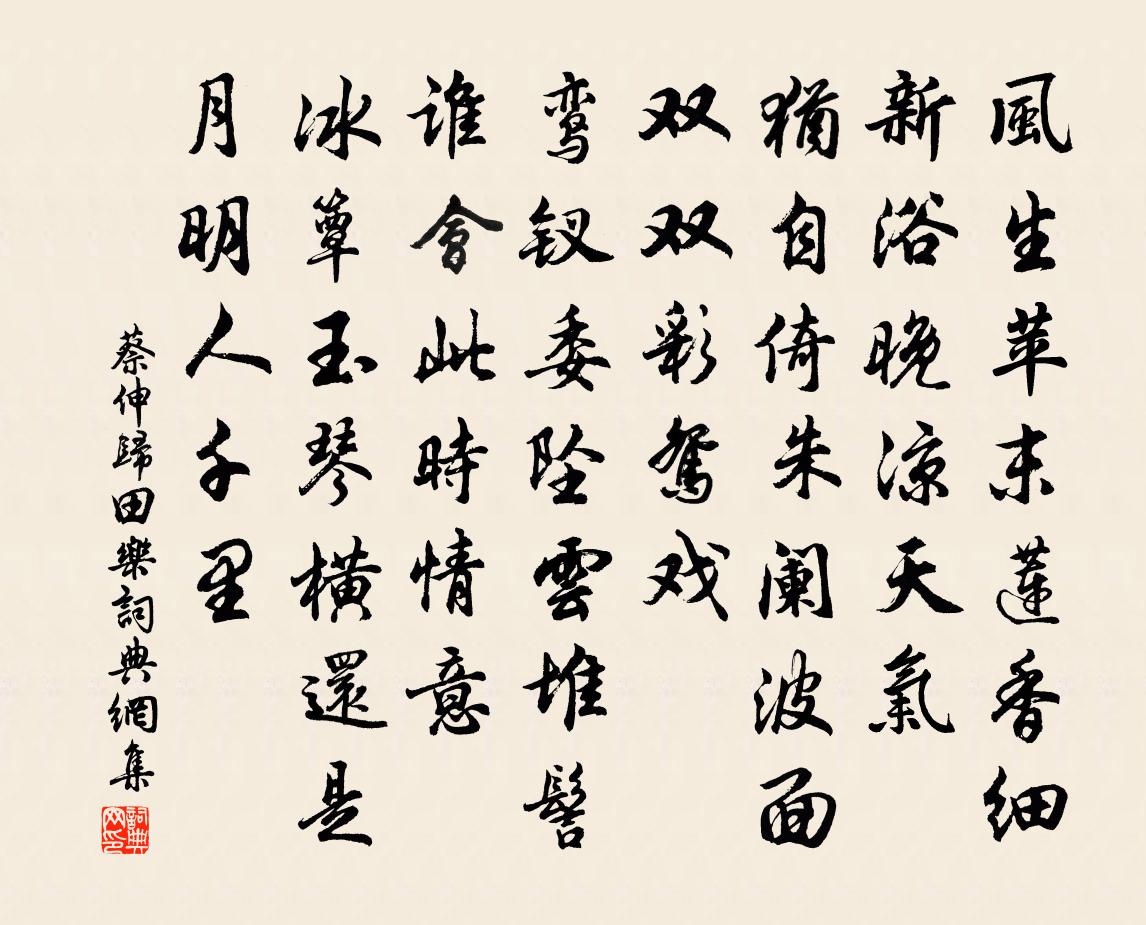 風生苹末蓮香细
新浴晚凉天氣
猶自倚朱阑波面
双双彩鸳戏
鸾钗委坠雲堆髻
谁會此時情意
冰簟玉琴横還是
月明人千里
蔡伸歸田樂詞典網集
詞典网印